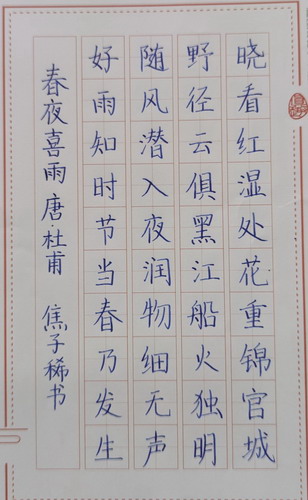 春夜喜雨 唐·杜甫 焦子稀书
好雨知时节当春乃发生
随风潜入夜润物细无声
野径云俱黑江船火独明
晓看红湿处花重锦官城